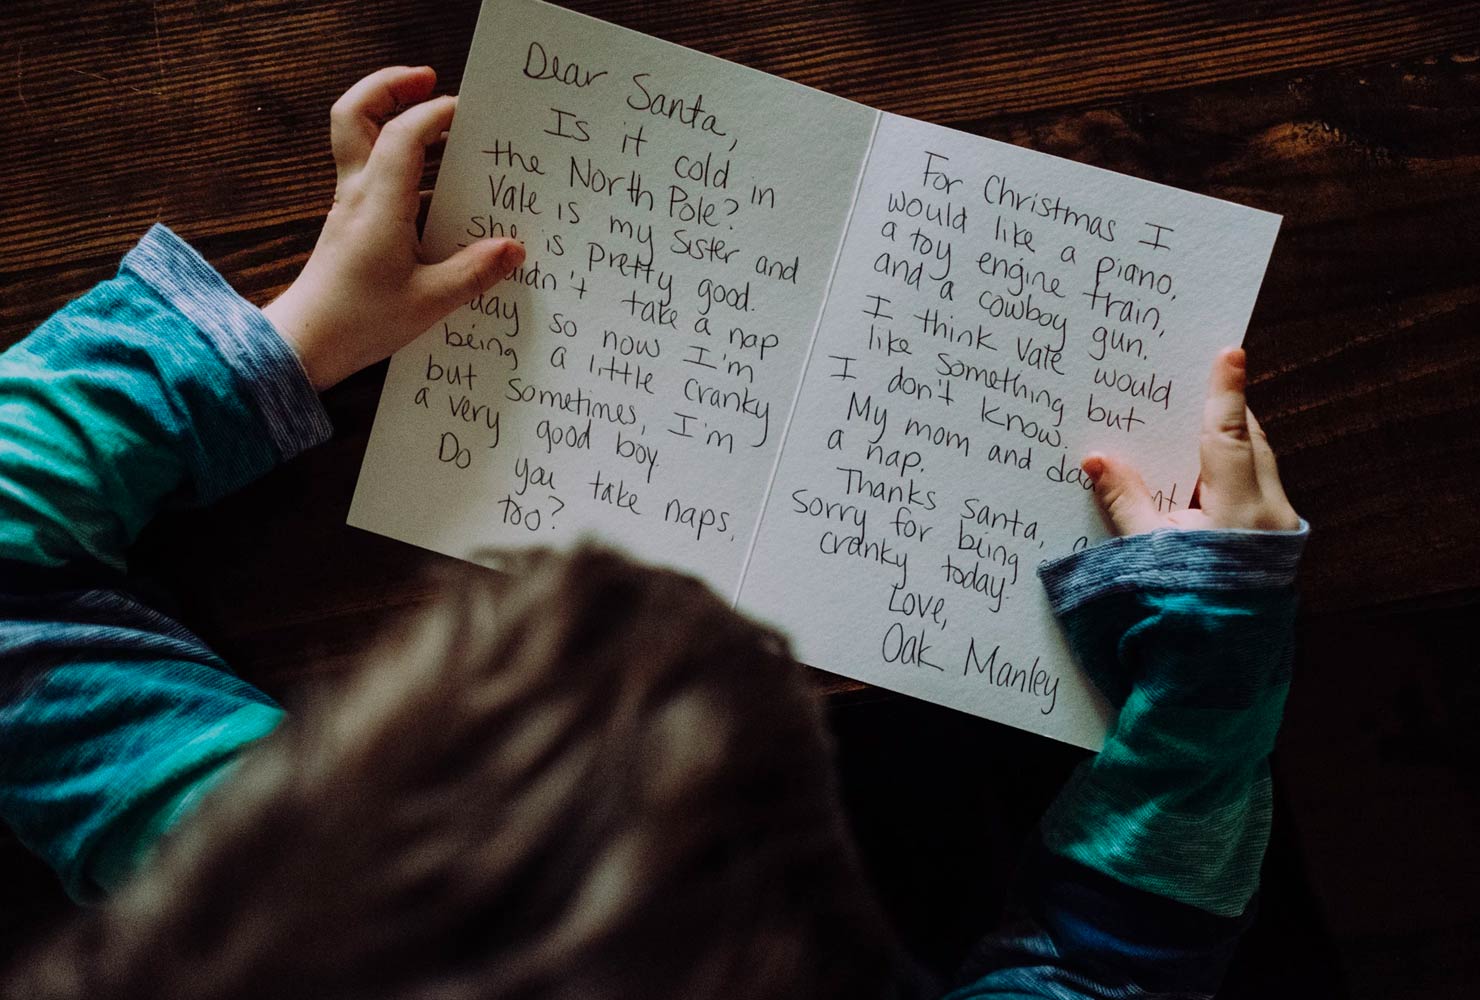 Dear Santa,
Is it cold in
the North Pole?
Vale is my sister and
she is pretty good.
take a nap
so now I'm
being a little cranky
but sometimes, I'm
a very good boy.
Do you take naps,
too?
For Christmas I
would like a piano,
a toy engine train,
and a cowboy gun.
I think Vale would
like something but
I don't know.
My mom and dad
a nap.
Thanks Santa,
sorry for being
cranky today.
Love,
Oak Manley